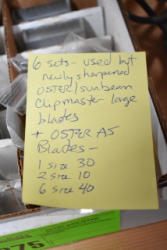 6 sets - used but
newly sharpened
OSTER/Sunbeam
Clipmaster large
blades
+ OSTER A5
Blades -
1 size 30
2 size 10
6 size 40
75